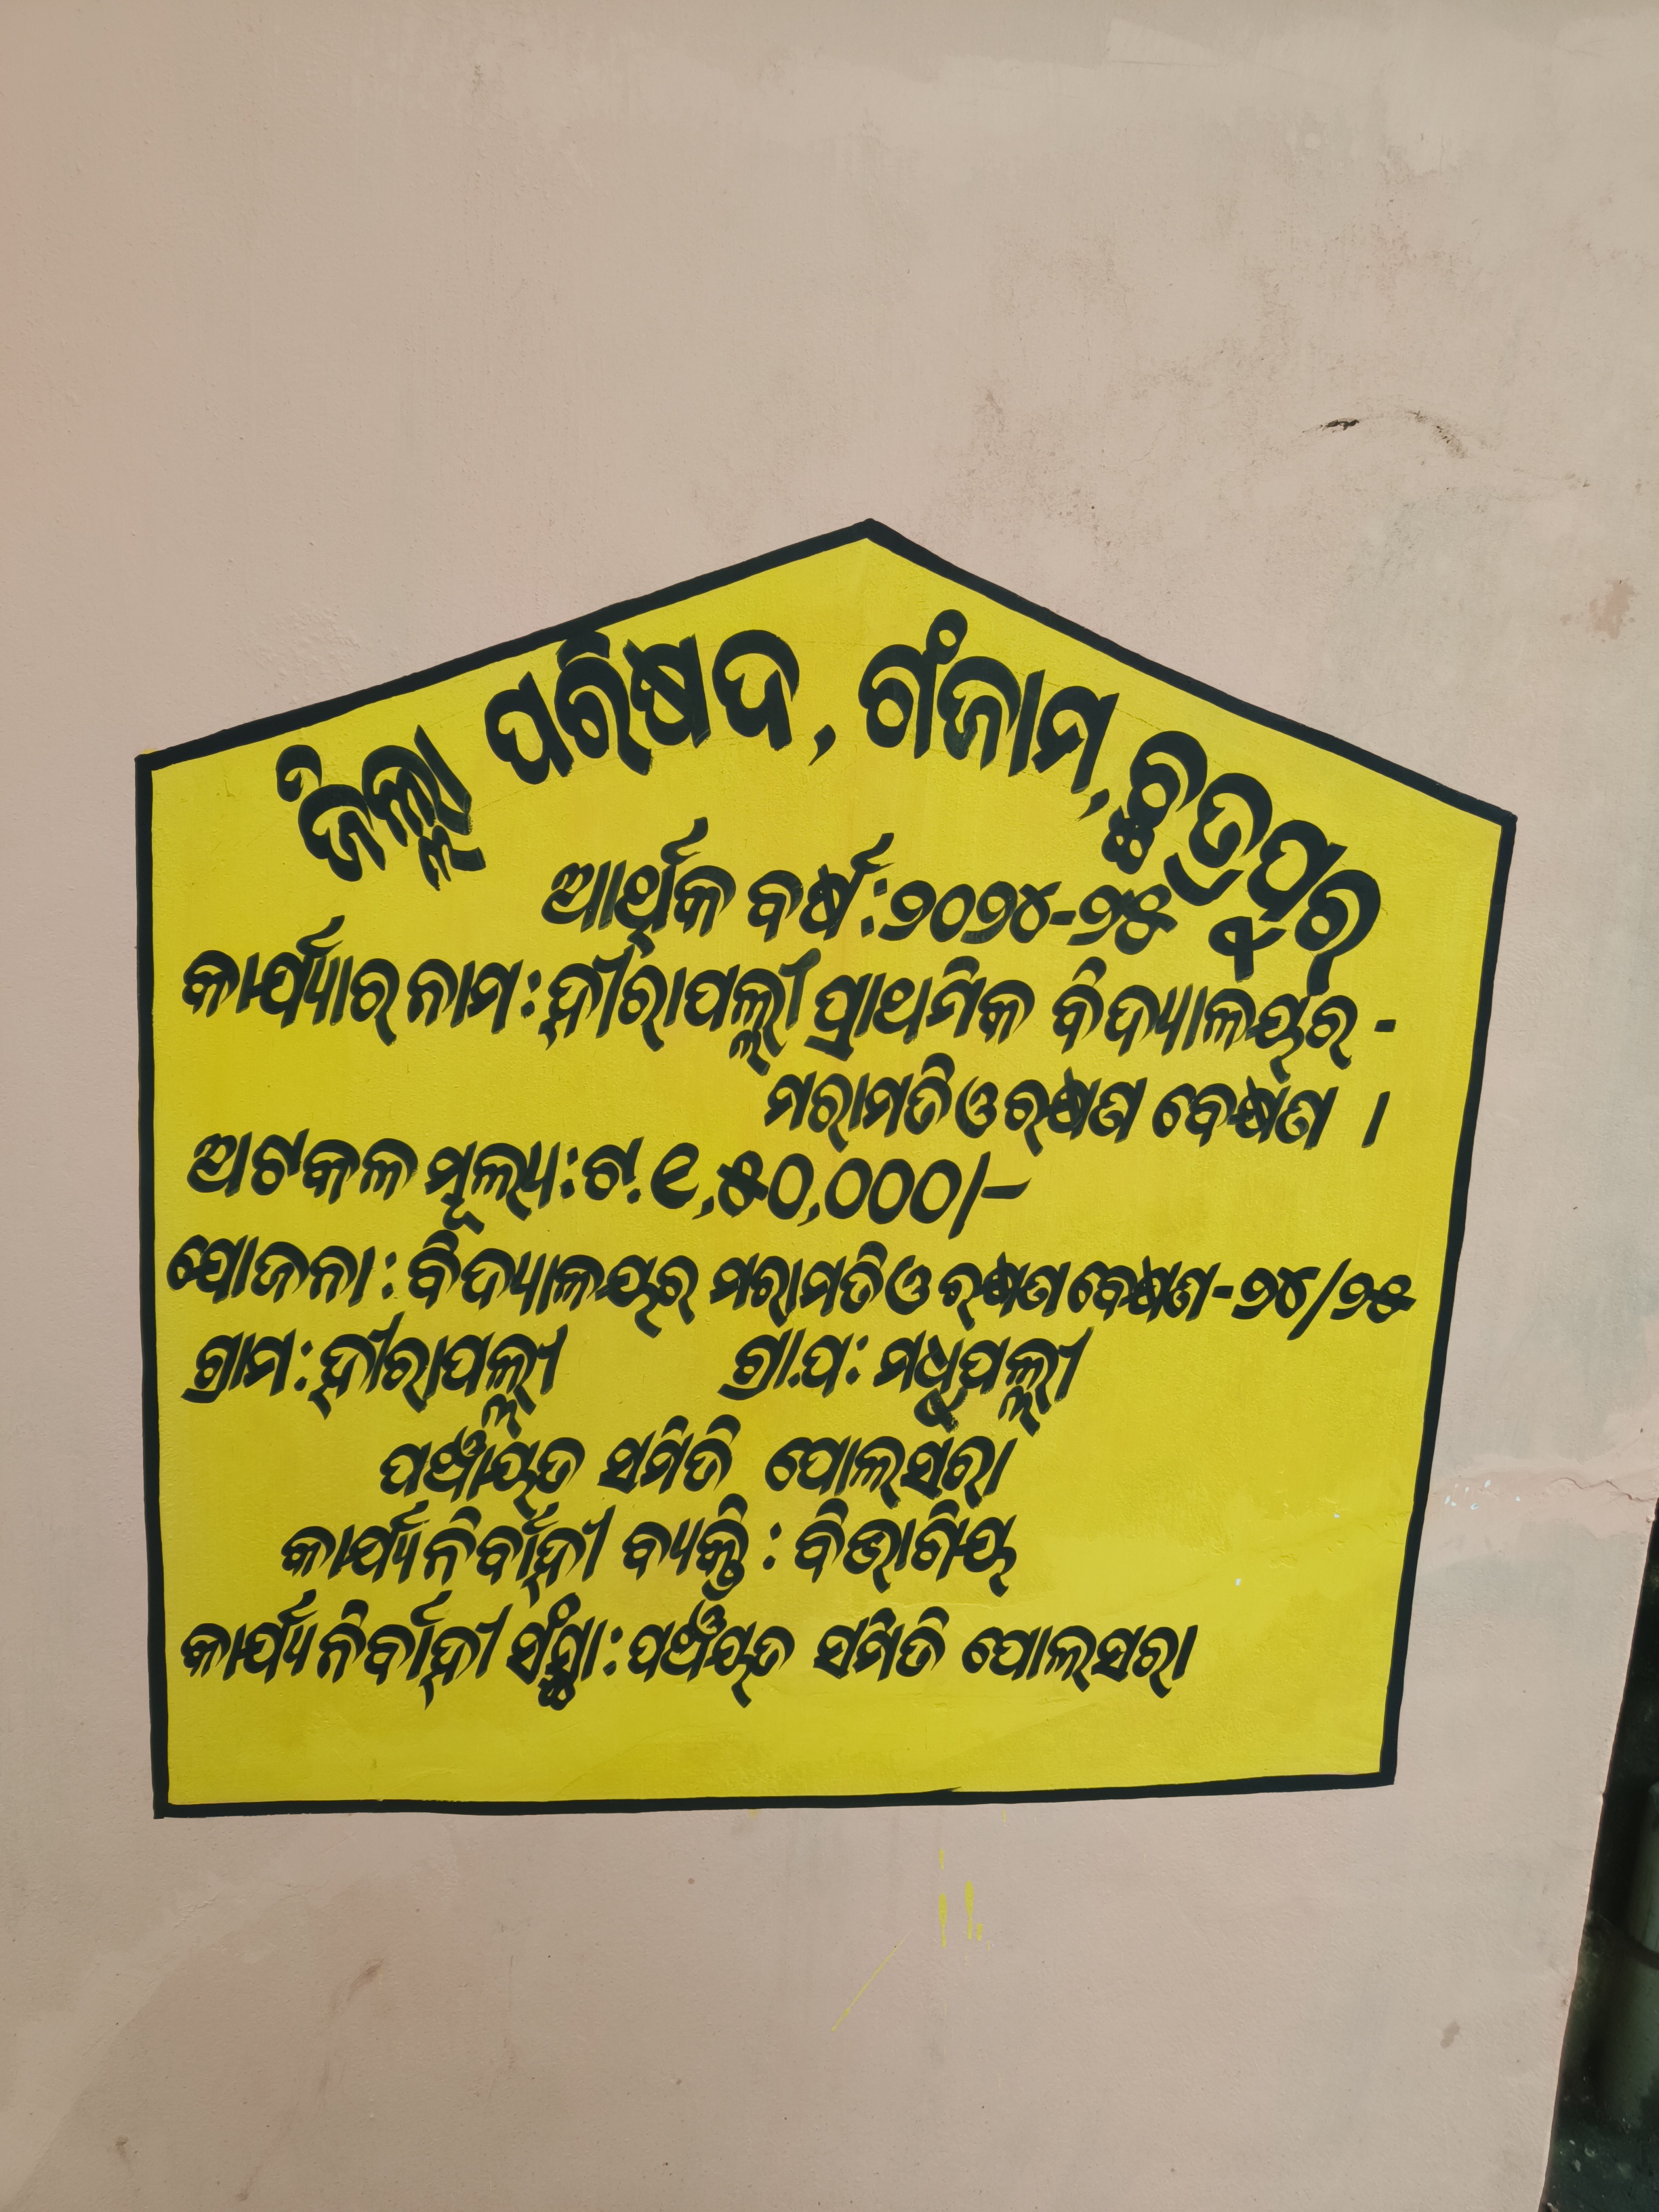 ଜିଲ୍ଲା ପରିଷଦ, ଗଂଜାମ, ଛତ୍ରପୁର
ଆର୍ଥିକ ବର୍ଷ : ୨୦୨୪-୨୫
କାର୍ଯ୍ୟାର ନାମ : ହୀରାପଲ୍ଲୀ ପ୍ରାଥମିକ ବିଦ୍ୟାଳୟର -
ମରାମତି ଓ ରକ୍ଷଣ ବେକ୍ଷଣ ।
ଅଟକଳ ମୂଲ୍ୟ : ଟ. ୧,୫୦,୦୦୦/-
ଯୋଜନା : ବିଦ୍ୟାଳୟର ମରାମତି ଓ ରକ୍ଷଣ ବେକ୍ଷଣ - ୨୪/୨୫
ଗ୍ରାମ : ହୀରାପଲ୍ଲୀ ଗ୍ରା.ପ : ମଧୁପଲ୍ଲୀ
ପଞ୍ଚାୟତ ସମିତି ପୋଲସରା
କାର୍ଯ୍ୟନିର୍ବାହୀ ବ୍ୟକ୍ତି : ବିଭାଗିୟ
କାର୍ଯ୍ୟନିର୍ବାହୀ ସଂସ୍ଥା : ପଞ୍ଚାୟତ ସମିତି ପୋଲସରା